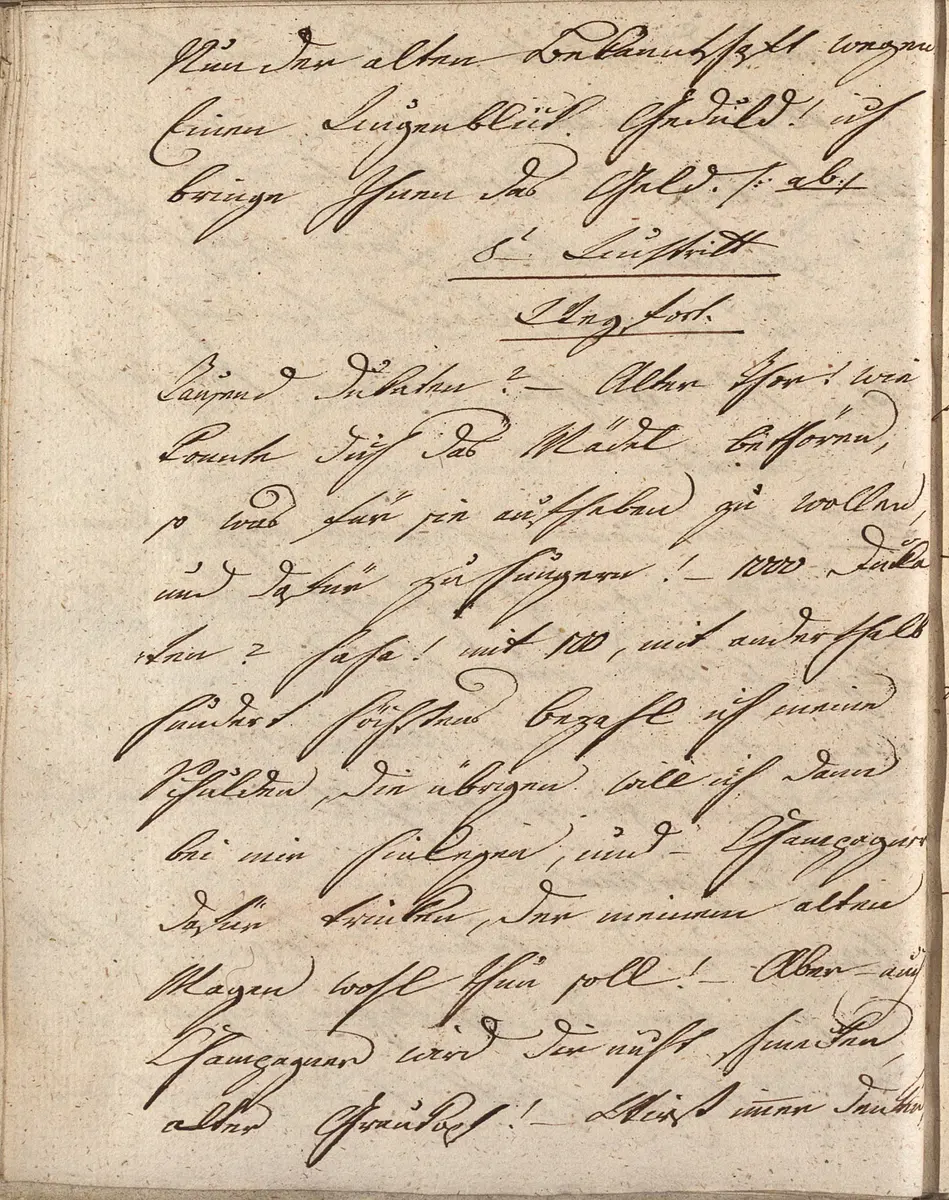 Nun der alten Bekanntschaft wegen
Einen Augenblick Geduld! ich
bringe Ihnen das Geld. /: ab :/
8t Auftritt
Weg fort.
Tausend Dukaten? – Alter Thor! wie
konnte dich das Mädel bethören,
so was für sie aufheben zu wollen,
und dafür zu hungern! – 1000 Duka
ten? haha! mit 100, mit anderthalb
hundert höchstens bezahl ich meine
Schulden, die übrigen will ich dann
bei mir hinlegen, und – Champagner
dafür trinken, der meinem alten
Magen wohl thun soll! – Aber – auch
Champagner wird dir nicht schmecken,
alter Graukopf! – Wirst imer denken,